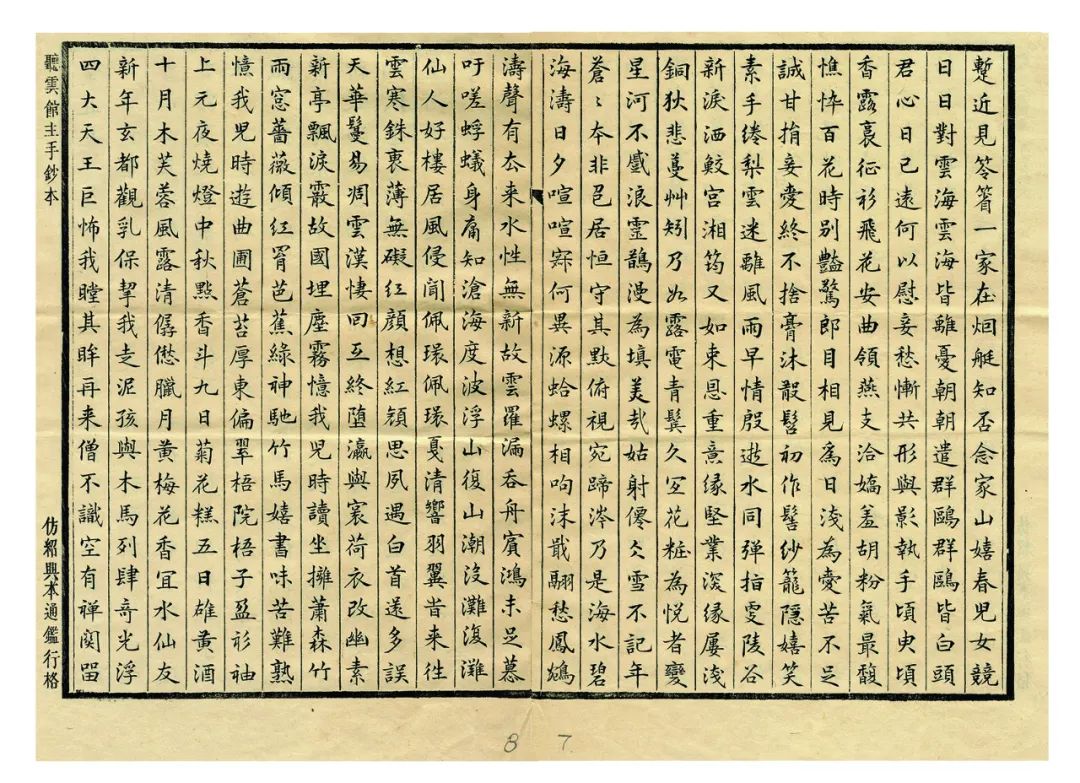 蹔近見笭箵一家在烟艇知否念家山嬉春兒女競
日日對雲海雲海皆離憂朝朝遣群鷗群鷗皆白頭
君心日已遠何以慰妾愁慚共形與影執手頃臾頃
香露裛征衫飛花安曲領燕支洽嬌羞胡粉氣最馥
憔悴百花時別豔驚郎目相見為日淺為愛苦不足
誠甘捐妾愛終不捨膏沐初作髻紗籠隱嬉笑
素手綣梨雲迷離風雨早情殷逝水同彈指陵谷
新淚洒鮫宮湘筠又如束恩重意緣堅業深緣屢淺
銅狄悲蔓艸矧乃如露電青鬢久冝花粧為悅者變
星河不浪靈鵲漫為填美哉姑射僊仌雪不記年
蒼〻本非色居恒守其默俯視宛蹄涔乃是海水碧
海濤日夕喧喧寂何異源蛤螺相呴沫戢翮愁鳳鵷
濤聲有厺来水性無新故雲羅漏吞舟賓鴻未足慕
吁嗟蜉蟻身庸知滄海度波浮山復山潮沒灘復灘
仙人好樓居風侵聞佩環佩環戛清響羽翼昔来徃
雲寒銖衷薄無礙紅顏想紅顏思夙遇白首還多誤
天華鬘易凋雲漢悽回互終墮瀛與寰荷衣改幽素
新亭飄淚霰故國埋塵霧憶我兒時讀坐擁蕭森竹
雨窓薔薇傾紅罥芭蕉綠神馳竹馬嬉書味苦難熟
憶我兒時遊曲圃蒼苔厚東偏翠梧院梧子盈衫袖
上元夜燒燈中秋點香斗九日菊花糕五日雄黃酒
十月木芙蓉風露清僝僽臘月黃梅花香宜水仙友
新年玄都觀乳保挈我走泥孩與木馬列肆奇光浮
四大天王巨怖我瞠其眸再来僧不識空有禅関留
聽雲館主手鈔本
仿紹興本通鑑行格
8 7